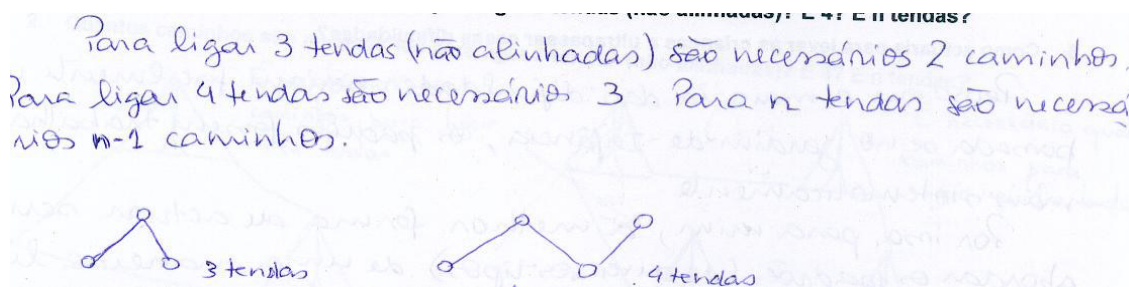 tendas (não alinhadas)? E 4? E n tendas?
Para ligar 3 tendas (não alinhadas) são necessários 2 caminhos.
Para ligar 4 tendas são necessários 3. Para n tendas são necessá
rios n-1 caminhos.
3 tendas
4 tendas